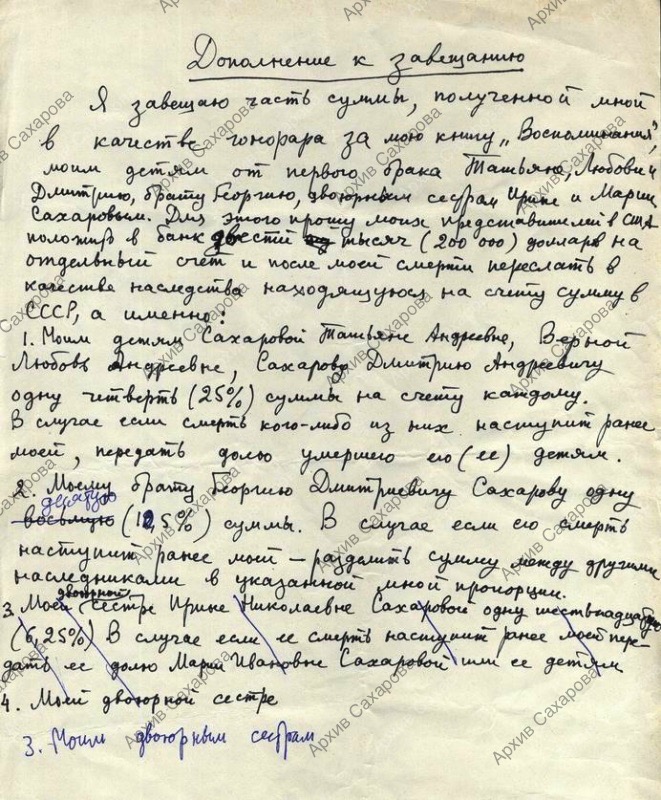 Дополнение к завещанию
Я завещаю часть суммы, полученной мной
в качестве гонорара за мою книгу „Воспоминания”,
моим детям от первого брака Татьяне, Любови и
Дмитрию, брату Георгию, двоюрным сестрам Ирине и Марии
Сахаровым. Для этого прошу моих представителей в США
положить в банк двести тысяч (200 000) долларов на
отдельный счет и после моей смерти переслать в
качестве наследства находящуюся на счету сумму в
СССР, а именно:
1. Моим детям Сахаровой Татьяне Андреевне, Верной
Любовь Андреевне, Сахарову Дмитрию Андреевичу
одну четверть (25%) суммы на счету каждому.
В случае если смерть кого-либо из них наступит ранее
моей, передать долю умершего его (ее) детям.
2. Моему брату Георгию Дмитриевичу Сахарову одну
десятую
восьмую (12,5%) суммы. В случае если его смерть
наступит ранее моей – разделить сумму между другими
наследниками в указанной мной пропорции.
двоюрной
3. Моей сестре Ирине Николаевне Сахаровой одну шестнадцатую
(6,25%) В случае если ее смерть наступит ранее моей пере-
дать ее долю Марии Ивановне Сахаровой или ее детям
4. Моей двоюрной сестре
3. Моим двоюрным сестрам
Архив Сахарова